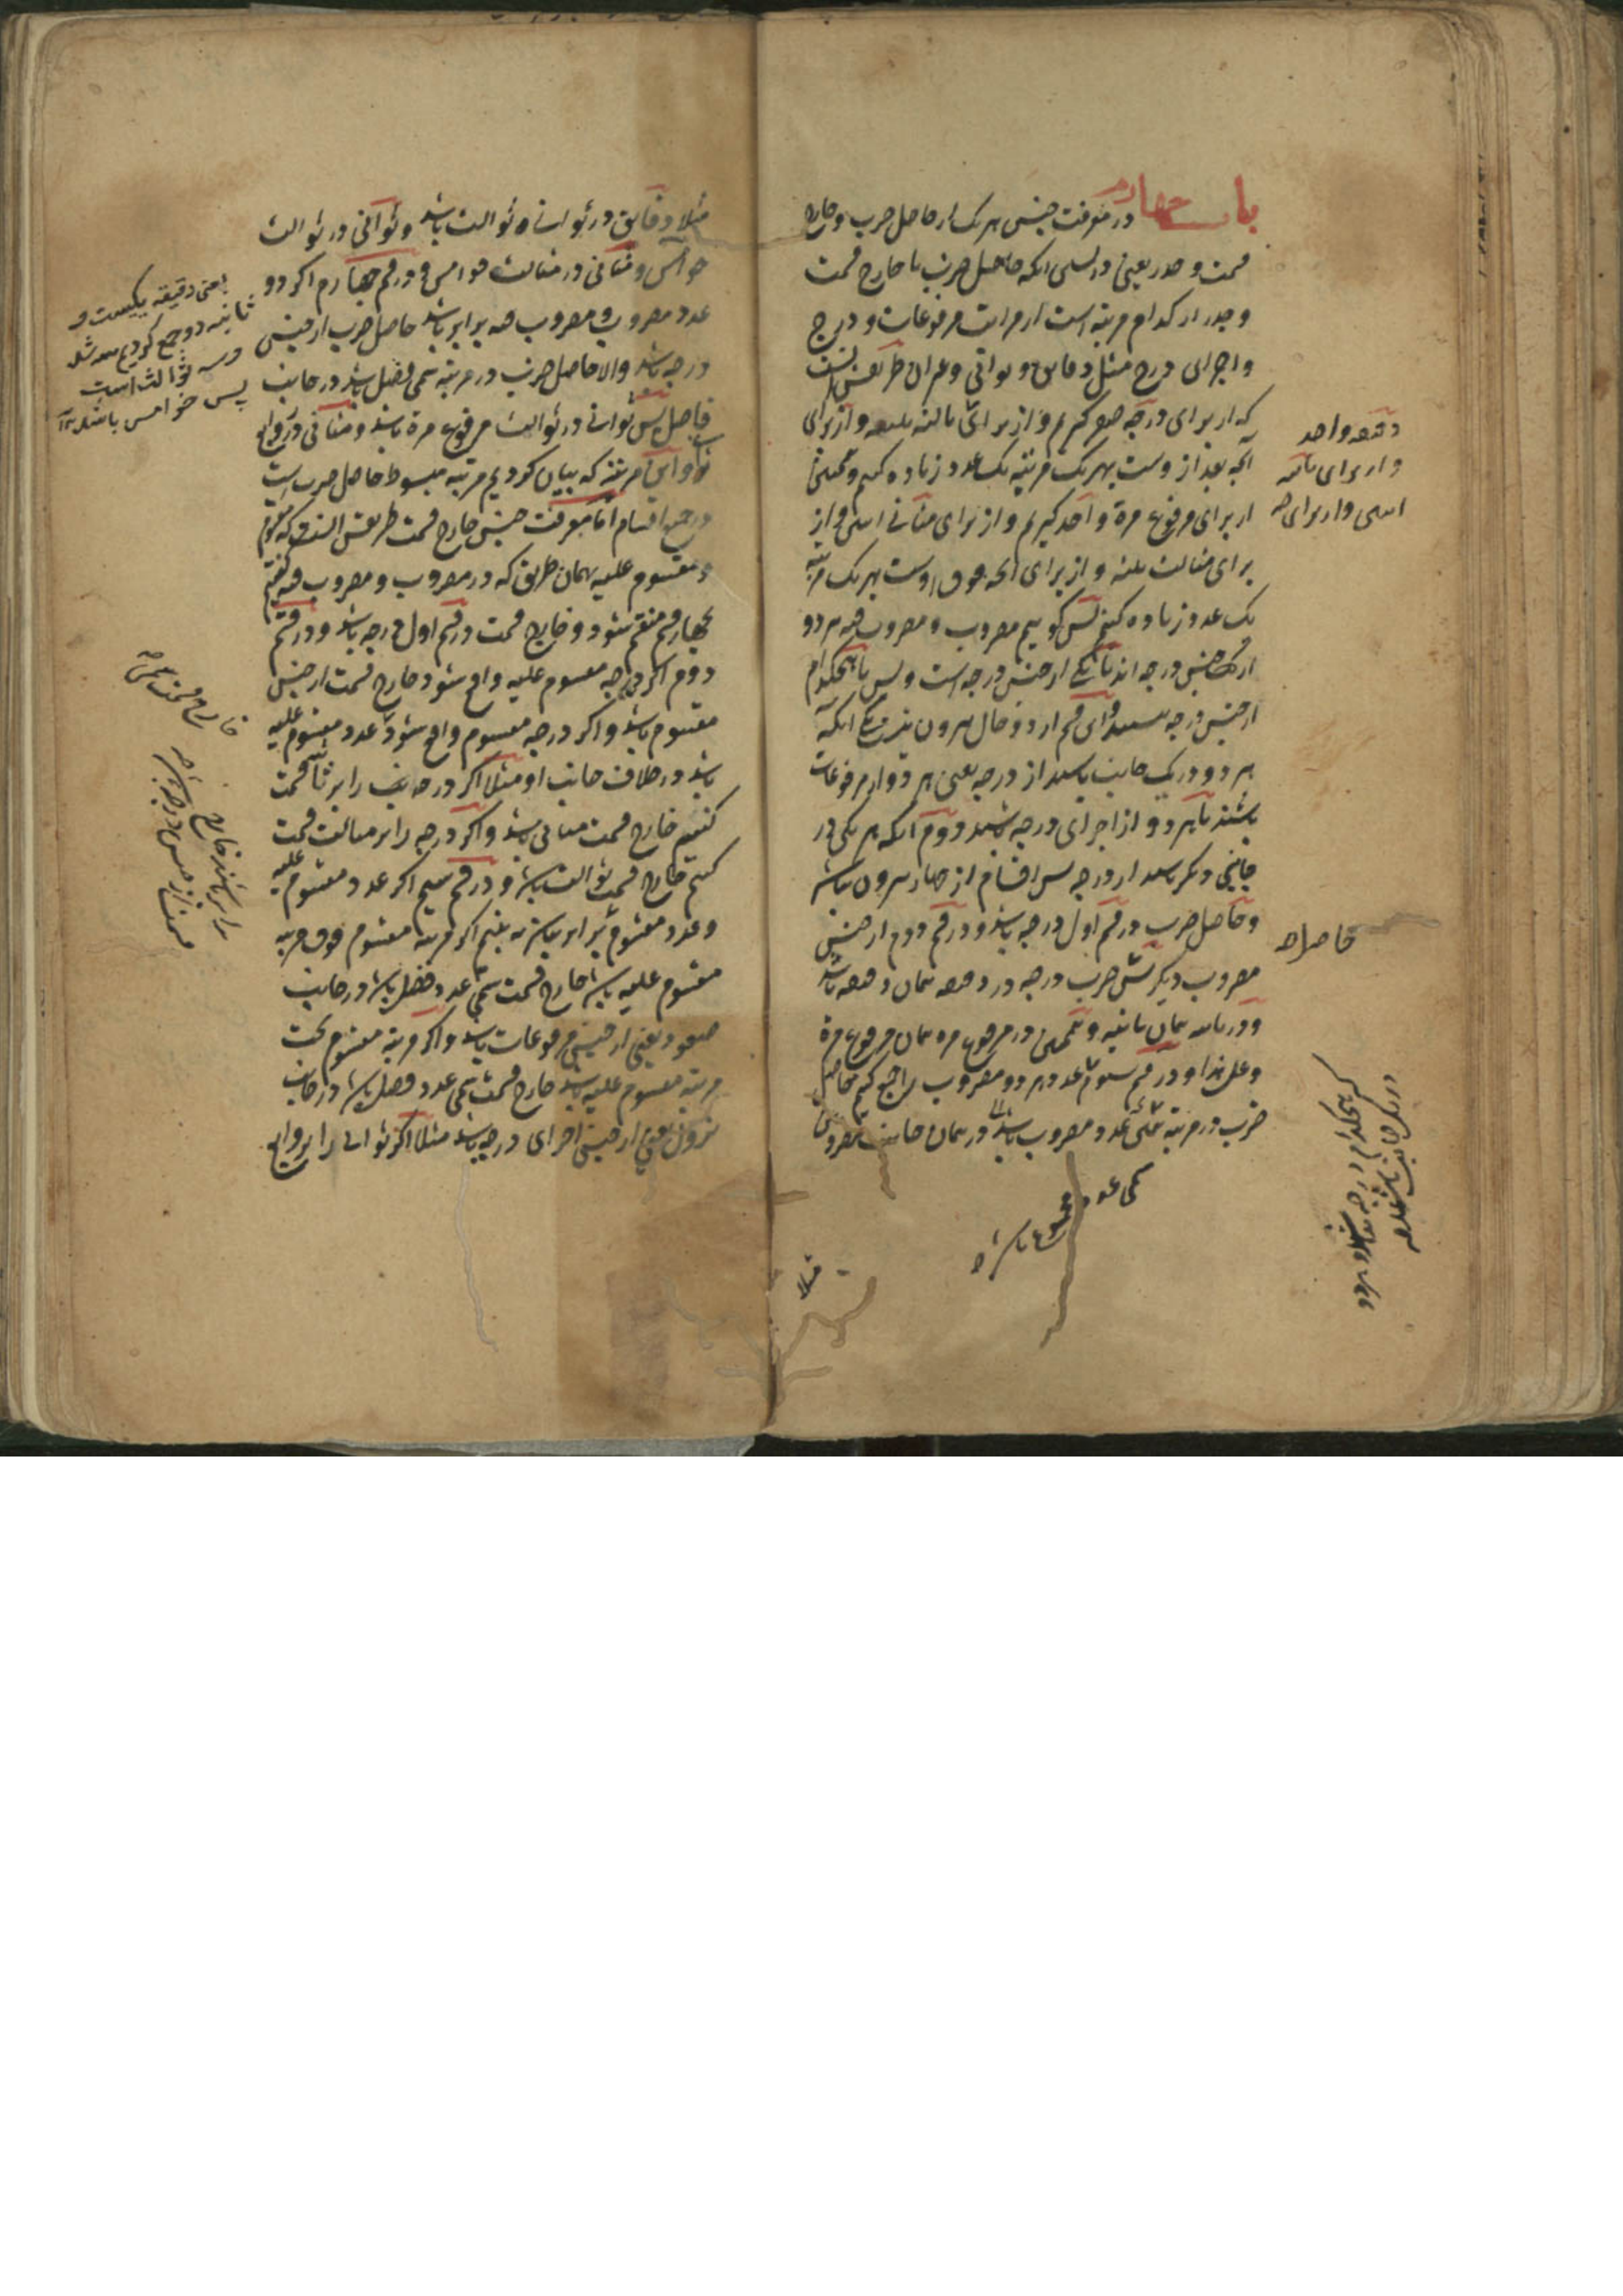 باب چهارم در معرفت جنس هر یک از حاصل ضرب و خارج
قسمت و جذر یعنی دانستن آنکه حاصل ضرب یا خارج قسمت
و جذر از کدام مرتبه است از مراتب مرفوعات و درج
و اجزای درج مثل دقایق و ثوانی و غیر آن طریقش آنست
که از برای درجه صفر گیریم و از برای ثالثه ثلثه و از برای
آنچه بعد از وست بهر یک مرتبه یک عدد زیاده کنیم و همچنین
از برای مرفوع مرة واحد گیریم و از برای مثانی اثنین و از
برای مثالث ثلثه و از برای آنچه فوق اوست بهر یک مرتبه
یک عدد زیاده کنیم پس گوییم مضروب و مضروب فیه هر دو
از جنس درجه اند یا یکی از جنس درجه است و بس یا هیچکدام
از جنس درجه نیستند و این قسم از دو حال بیرون نیست یکی آنکه
هر دو در یک جانب باشند از درجه یعنی هر دو از مرفوعات
باشند یا هر دو از اجزای درجه باشند دوم آنکه هر یکی در
جانبی دیگر باشند از درجه پس اقسام از چهار بیرون نباشد
و حاصل ضرب در قسم اول درجه باشد و در قسم دوم از جنس
مضروب دیگر مثلا ضرب درجه در دقیقه همان دقیقه باشد
و در ثانیه همان ثانیه و همچنین در مرفوع مره همان مرفوع مرة
و علی هذا و در قسم سوم عدد هر دو مضروب را جمع کنیم حاصل
ضرب در مرتبه سمی عدد مضروب باشد در همان جانب مضروبین
سمی عدد مجموع باشد
دقیقه واحد
و از برای ثانیه
اثنین و از برای
حاصل
که هیچکدام درجه نباشد و هر دو
در یک جانب باشند
مثلا
مثلا دقایق در ثوانی ثوالث باشد و ثوانی در ثوالث
خوامس و مثانی در مثالث خوامس و در قسم چهارم اگر دو
عدد مضروب و مضروب فیه برابر باشد حاصل ضرب از جنس
درجه باشد والا حاصل ضرب در مرتبه سمی فضل باشد در جانب
فاضل پس ثوانی در ثوالث مرفوع مرة باشد و مثانی در روابع
ثوانی و این مرتبه که بیان کردیم مرتبه مبسوط حاصل ضرب است
در جمیع اقسام اما معرفت جنس خارج قسمت طریقش آنست که مقسوم
و مقسوم علیه بهمان طریق که در مضروب و مضروب فیه گفتیم
بچهار قسم منقسم شود و خارج قسمت در قسم اول درجه باشد و در قسم
دوم اگر درجه مقسوم علیه واقع شود خارج قسمت از جنس
مقسوم باشد و اگر درجه مقسوم واقع شود عدد مقسوم علیه
باشد در خلاف جانب او مثلا اگر درجه را بر ثوانی قسمت
کنیم خارج قسمت مثانی باشد و اگر درجه را بر مثالث قسمت
کنیم خارج قسمت ثوالث باشد و در قسم سیم اگر عدد مقسوم علیه
و عدد مقسوم برابر نباشد ببینیم اگر مرتبه مقسوم فوق مرتبه
مقسوم علیه باشد خارج قسمت سمی عدد فضل باشد در جانب
صعود یعنی از جنس مرفوعات باشد و اگر مرتبه مقسوم تحت
مرتبه مقسوم علیه باشد خارج قسمت سمی عدد فضل باشد در جانب
نزول یعنی از جنس اجزای درجه باشد مثلا اگر ثوانی را بر روابع
یعنی دقیقه یکیست و
ثانیه دو جمع کردیم سه شد
و سه ثوالث است
پس خوامس باشد
خارج قسمت سمی